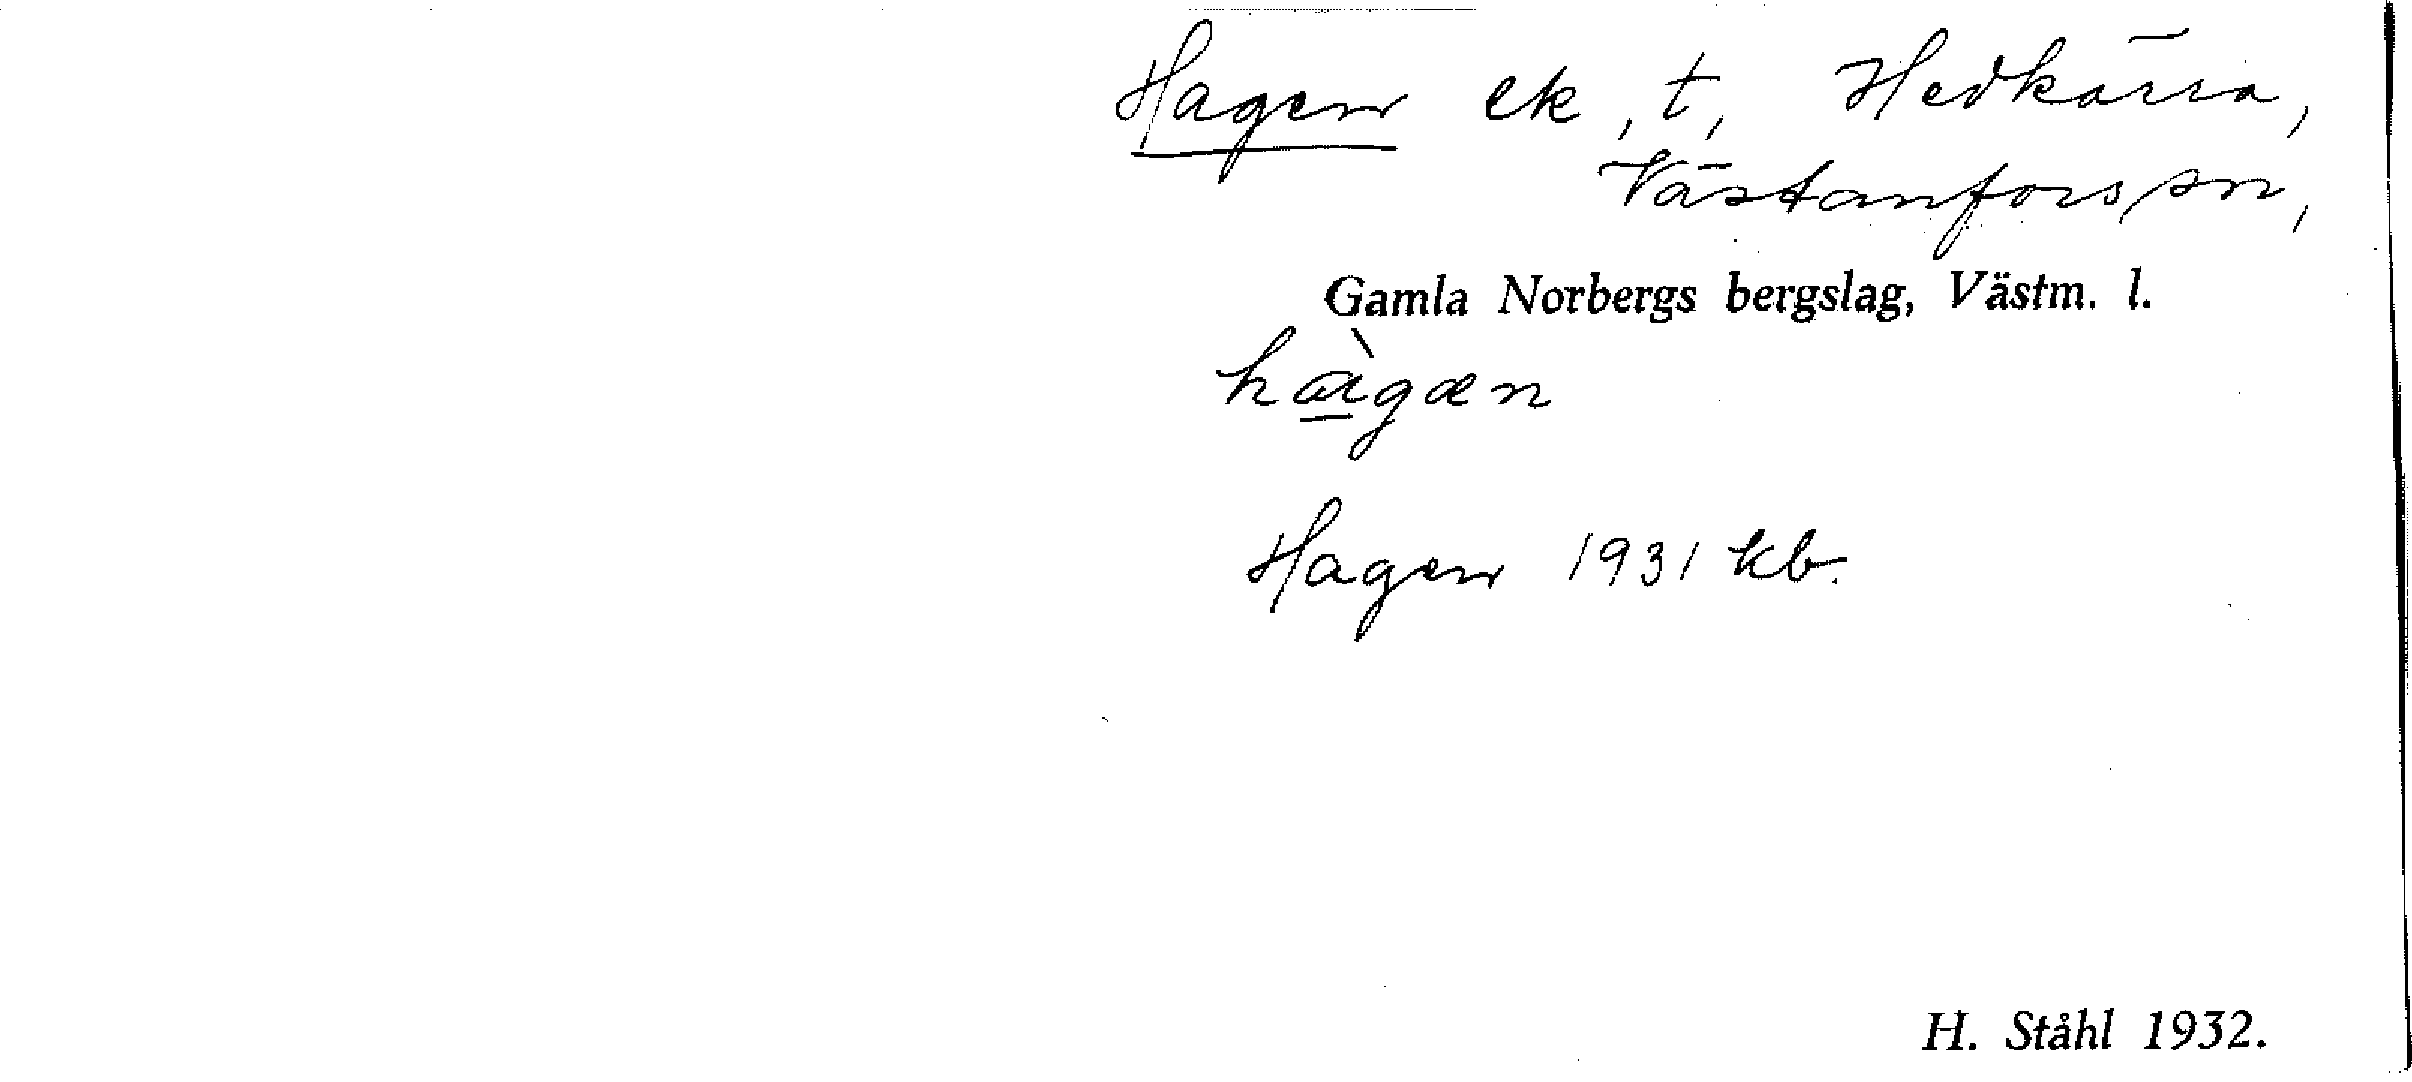 Hagen ek, t, Hedkärra,
Västanfors sn,
Gamla Norbergs bergslag, Västm. l.
hàgæn
Hagen 1931 kb.
H. Ståhl 1932.